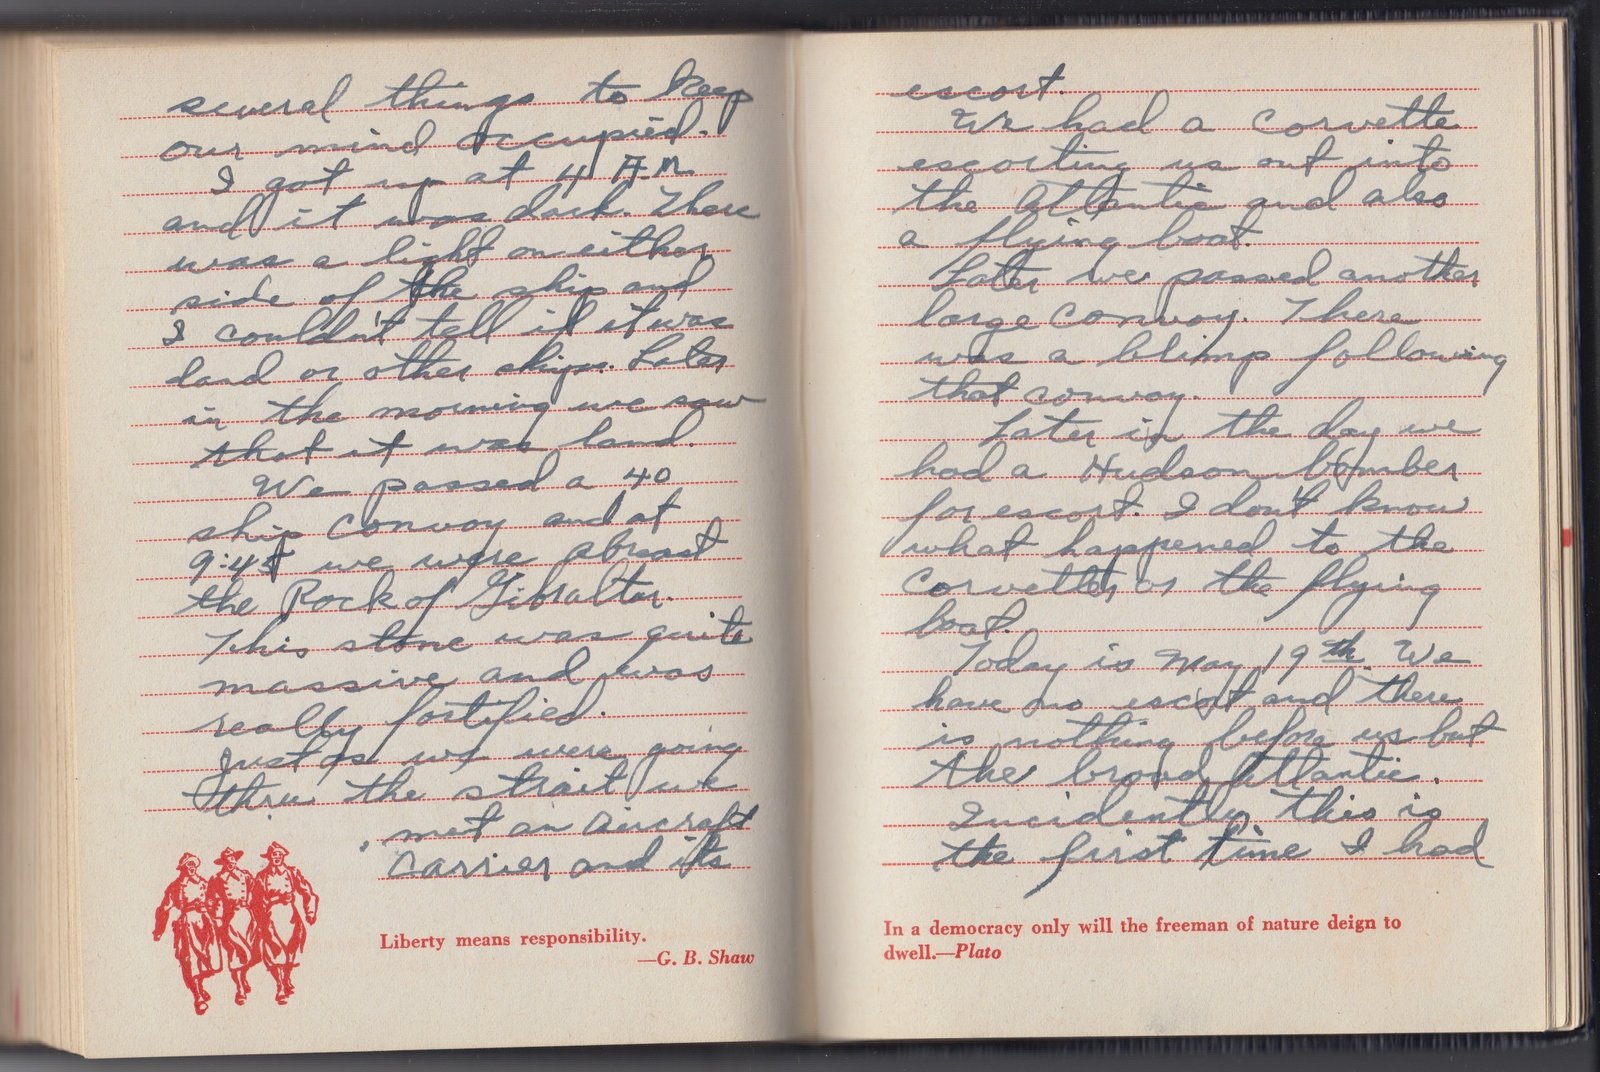 several things to keep
our mind occupied.
I got up at 4 A.M.
and it was dark. There
was a light on either
side of the ship and
I couldn't tell if it was
land or other ships. Later
in the morning we saw
that it was land.
We passed a 40
ship convoy and at
9:45 we were abreast
the Rock of Gibraltar.
This stone was quite
massive and was
really fortified.
Just as we were going
thru the strait we
met an aircraft
carrier and its
Liberty means responsibility.
—G. B. Shaw
escort.
We had a corvette
escorting us out into
the Atlantic and also
a flying boat.
Later we passed another
large convoy. There
was a blimp following
that convoy.
Later in the day we
had a Hudson bomber
for escort. I don't know
what happened to the
corvettes or the flying
boat.
Today is May 19th. We
have no escort and there
is nothing before us but
the broad Atlantic.
Incidently this is
the first time I had
In a democracy only will the freeman of nature deign to
dwell.—Plato